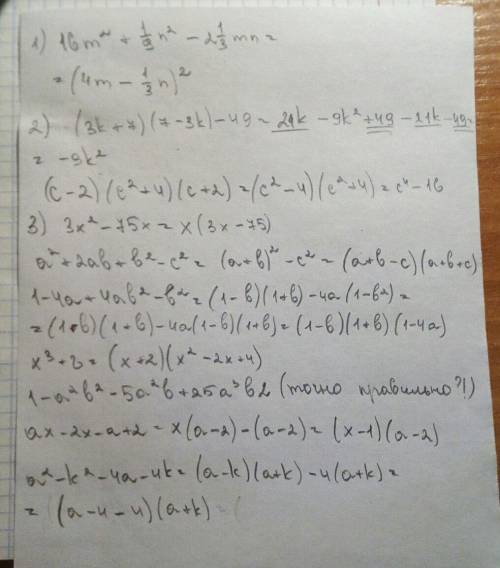 1) 16m² + 1/9 n² - 2 1/3 mn =
= (4m - 1/3 n)²
2) (3k + 7)(7 - 3k) - 49 = 21k - 9k² + 49 - 21k - 49 =
= -9k²
(c - 2)(c² + 4)(c + 2) = (c² - 4)(c² + 4) = c⁴ - 16
3) 3x² - 75x = x(3x - 75)
a² + 2ab + b² - c² = (a + b)² - c² = (a + b - c)(a + b + c)
1 - 4a + 4ab² - b² = (1 - b)(1 + b) - 4a(1 - b²) =
= (1 - b)(1 + b) - 4a(1 - b)(1 + b) = (1 - b)(1 + b)(1 - 4a)
x³ + 8 = (x + 2)(x² - 2x + 4)
1 - a²b² - 5a²b + 25a³b2 (точно правильно?!)
ax - 2x - a + 2 = x(a - 2) - (a - 2) = (x - 1)(a - 2)
a² - k² - 4a - 4k = (a - k)(a + k) - 4(a + k) =
= (a - 4 - 4)(a + k)